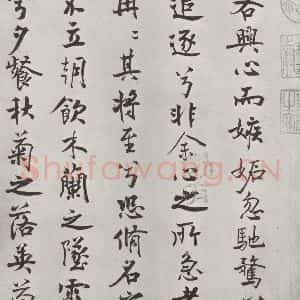 各興心而嫉妬忽馳騖
追逐兮非余心之所急老
冉〻其將至兮恐脩名
不立朝飲木蘭之墜露
兮夕餐秋菊之落英苟
Shufawang.CN